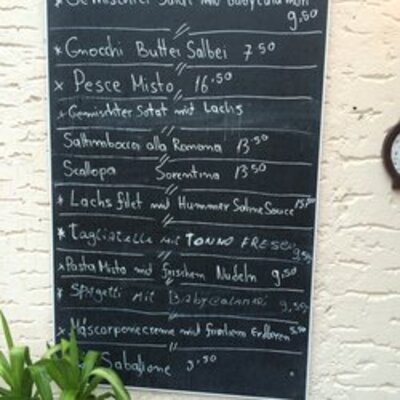 * Gemischter Salat mit Babycalamari
9,50
* Gnocchi Butter Salbei 7,50
x Pesce Misto 16,50
x Gemischter Salat mit Lachs
Saltimbocca alla Romana 13,50
Scallopa Sorentina 13,50
* Lachsfilet und Hummer Sahne Sauce
* Tagliatelle mit TONNO FRESCO
9,50
* Pasta Misto mit frischem Nudeln 9,50
* Spagetti mit Babycalamari 9,50
x Mascarponecreme mit frischem Erdbeeren 5,50
Sabaione 5,50